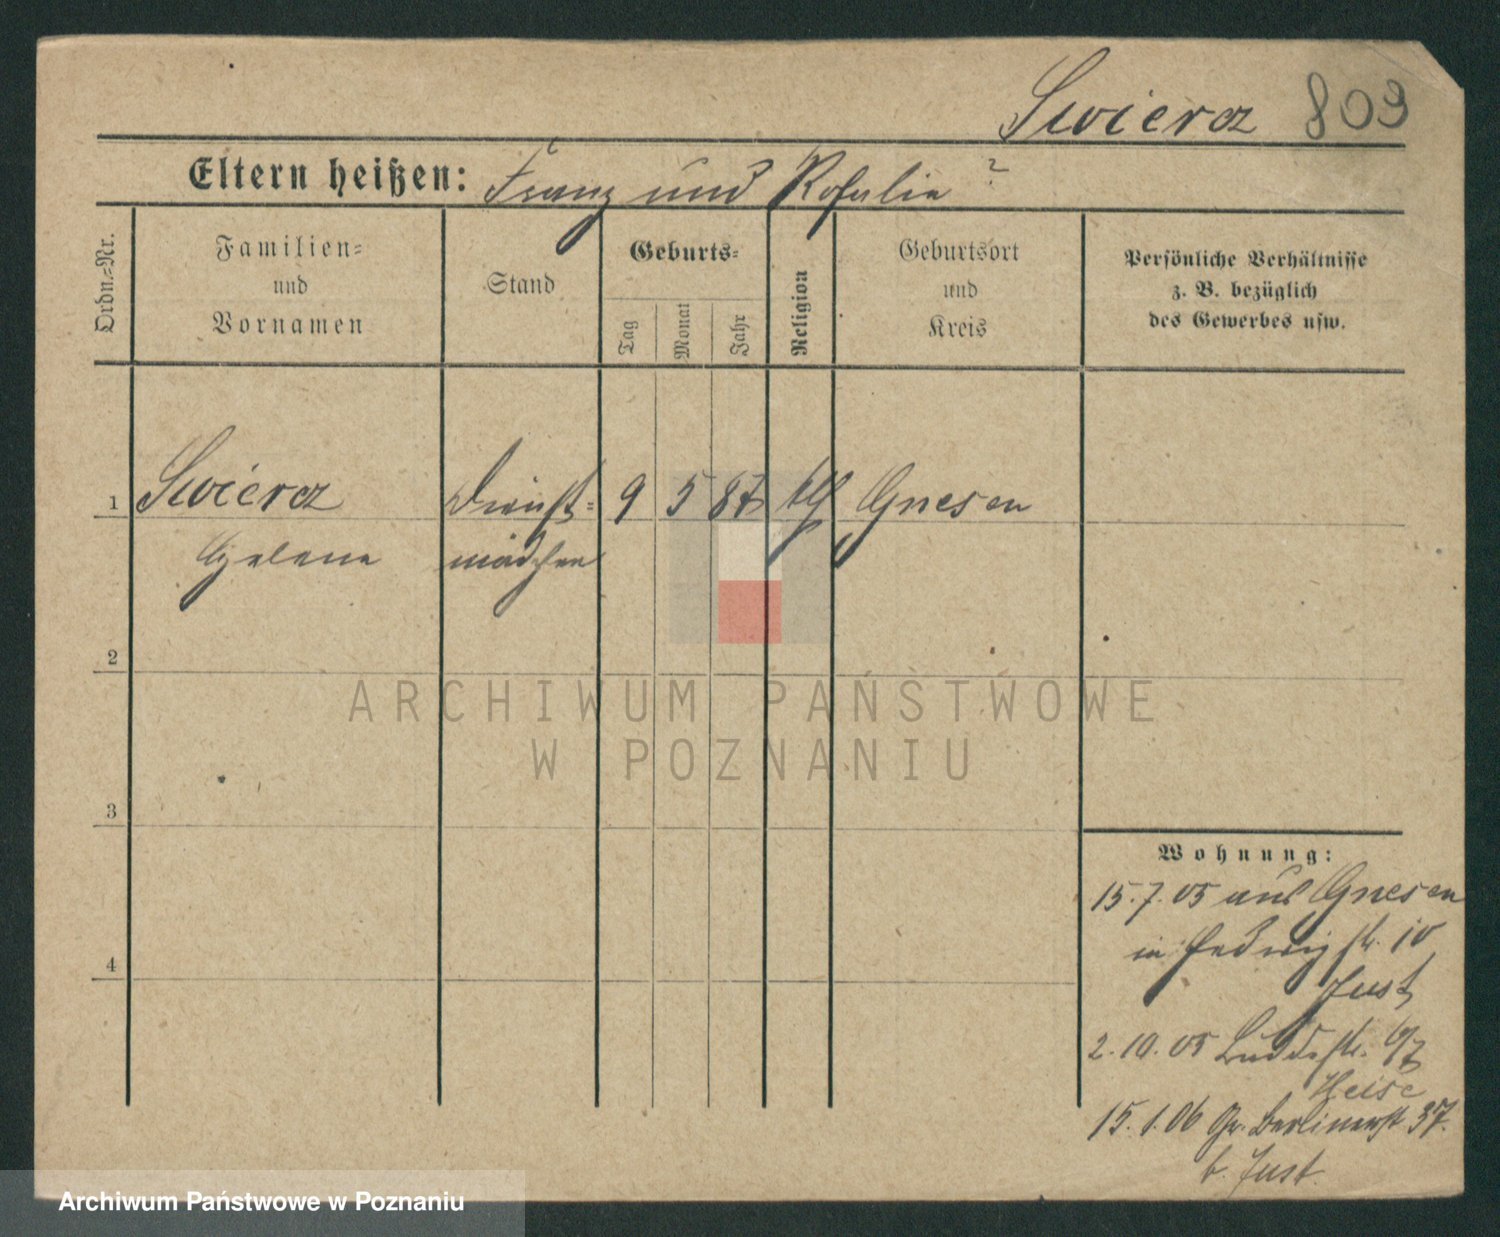 Swiercz 809
Eltern heißen: Franz und Rosalie ?
Ordn.=Nr.
Familien=
und
Vornamen
Stand
Geburts=
Tag
Monat
Jahr
Religion
Geburtsort
und
Kreis
Persönliche Verhältnisse
z. B. bezüglich
des Gewerbes usw.
1 Swiercz Dienst= 9 5 87 kth Gnesen
Helene mädchen
2
3
4
ARCHIWUM PAŃSTWOWE
W POZNANIU
Wohnung:
15.7.05 aus Gnesen
in Hedwigstr. 10
Just
2.10.05 Buddestr. 6/7
Heise
15.1.06 Gr. Berlinerst 37.
b. Just.
Archiwum Państwowe w Poznaniu